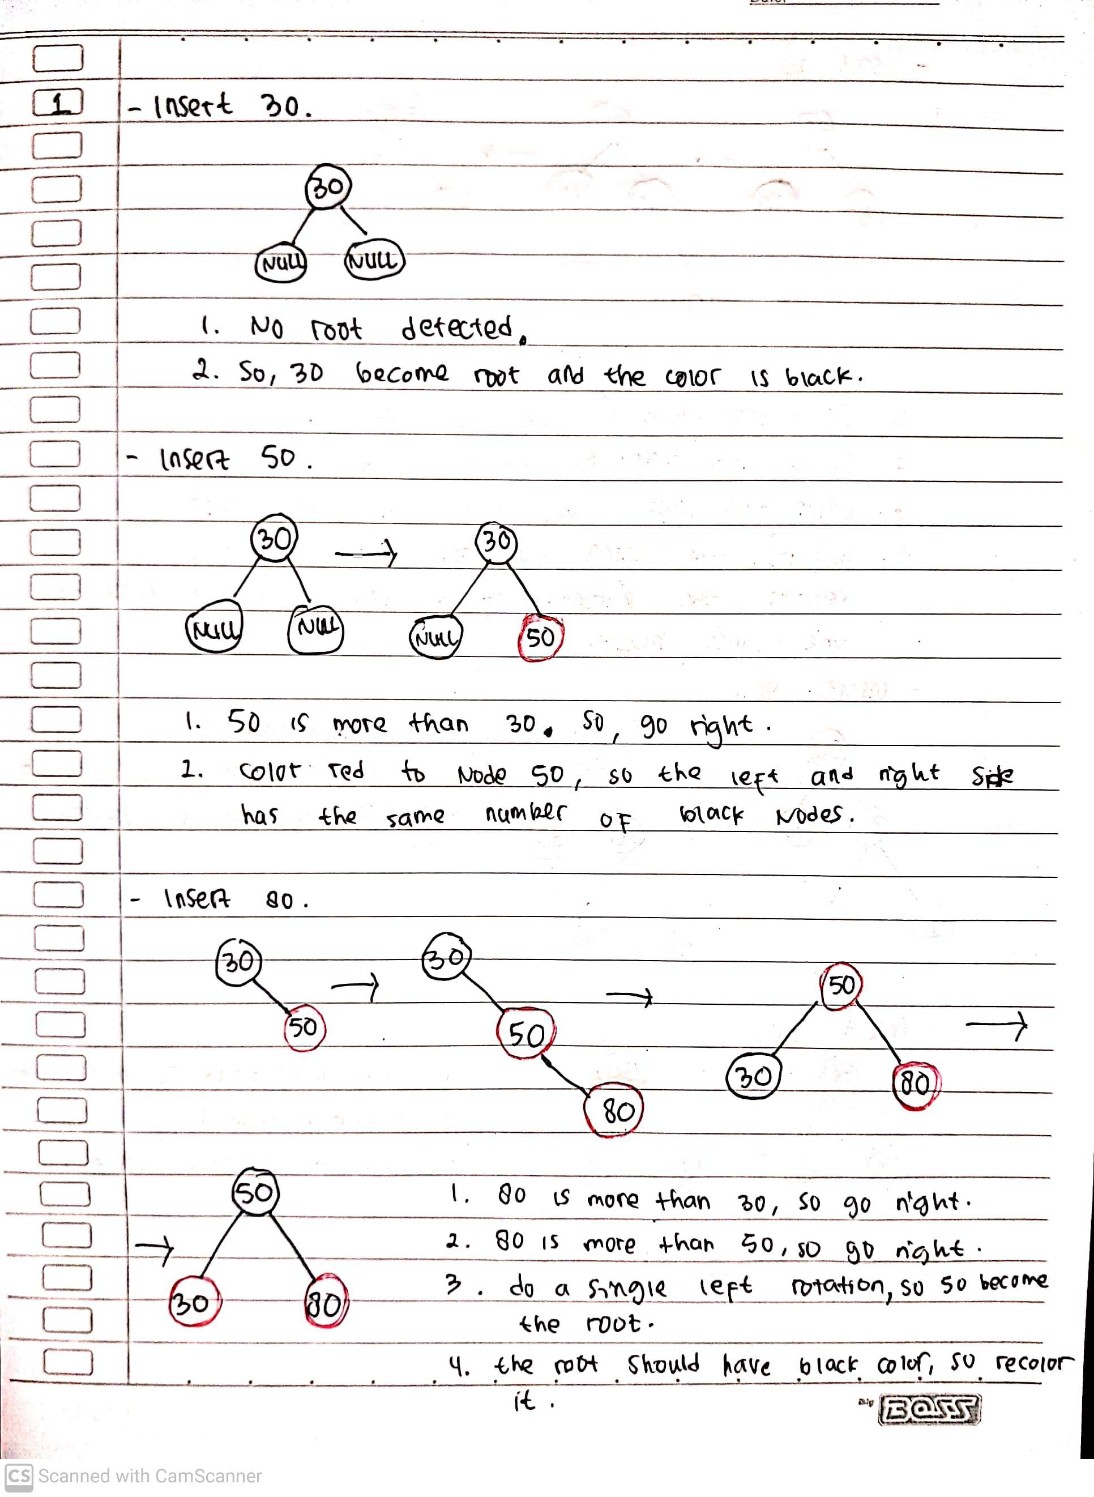 1 - Insert 30.
30
NULL NULL
1. No root detected.
2. So, 30 become root and the color is black.
- Insert 50.
30 → 30
NULL NULL NULL 50
1. 50 is more than 30. So, go right.
2. color red to Node 50, so the left and right side
has the same number of black Nodes.
- Insert 80.
30 → 30 → 50 →
50 50 30 80
80
→ 50
30 80
1. 80 is more than 30, so go right.
2. 80 is more than 50, so go right.
3. do a single left rotation, so 50 become
the root.
4. the root should have black color, so recolor
it.
BOSS
CS Scanned with CamScanner